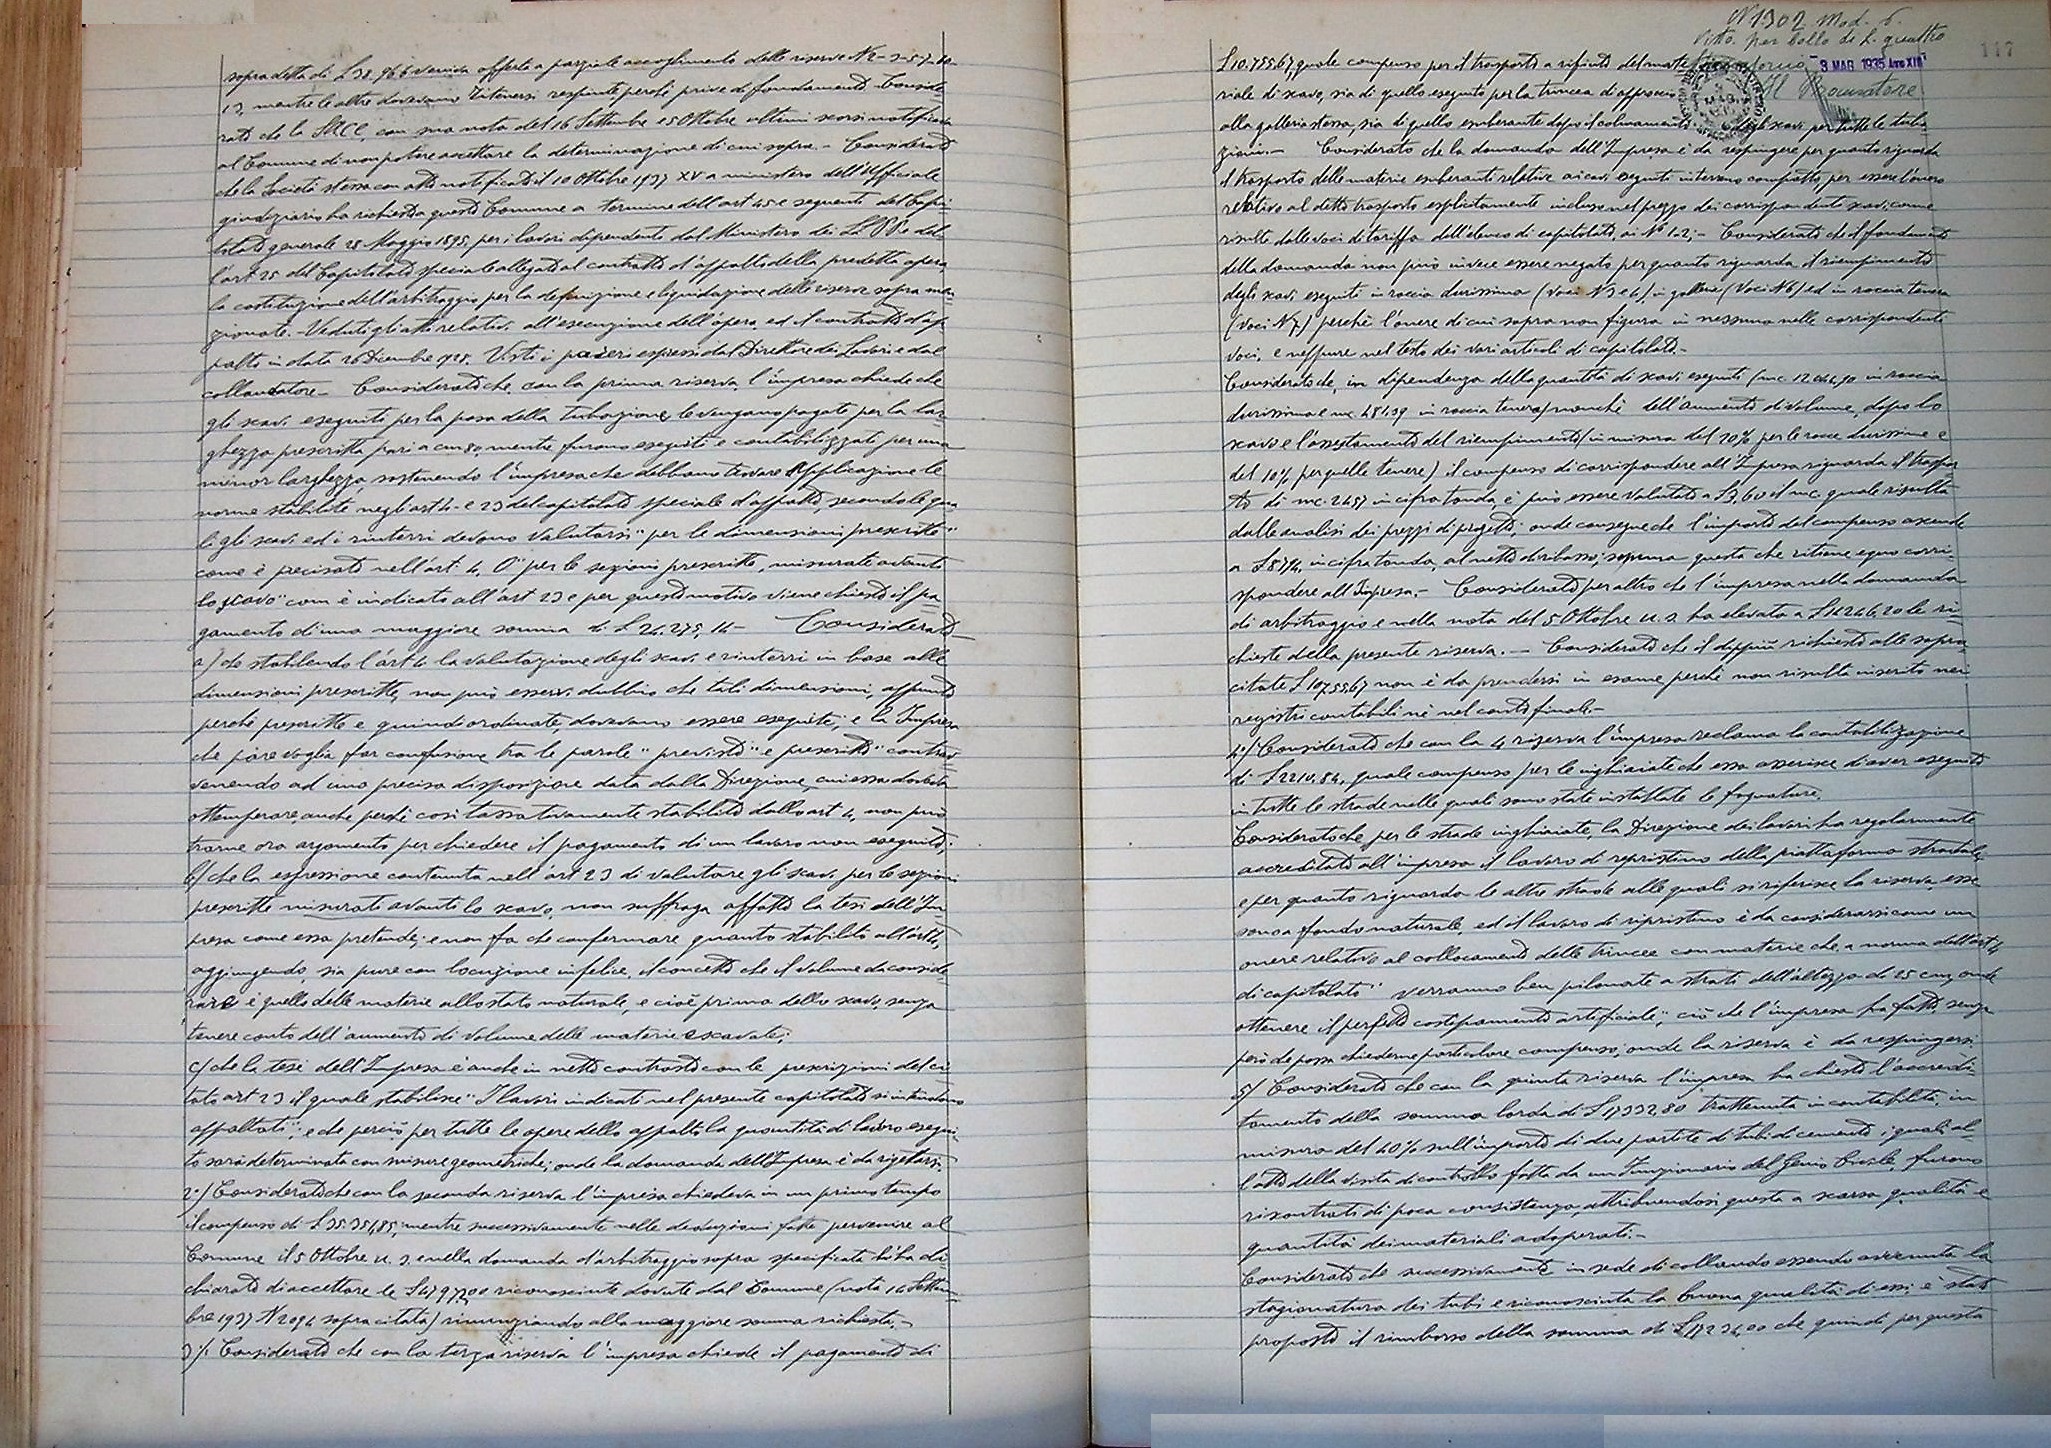 sopradetta di L 38.966 veniva offerta a parziale accoglimento delle riserve N 2-3-5-7-10-
13, mentre le altre dovevano ritenersi respinte perché prive di fondamento. Conside-
rato che la SACE, con sua nota del 16 Settembre e 5 Ottobre ultimi scorsi notificava
al Comune di non potere accettare la determinazione di cui sopra.- Considerato
che la Società stessa con atto notificato il 10 Ottobre 1937 XV a ministero dell'Ufficiale
giudiziario ha richiesto a questo Comune a termine dell'art 45 e seguenti del Capi-
tolato generale 28 Maggio 1895, per i lavori dipendenti dal Ministero dei LL PP e del-
l'art 25 del Capitolato speciale allegato al contratto d'appalto della predetta opera
la costituzione dell'arbitraggio per la definizione e liquidazione delle riserve sopra men-
zionate.- Veduti gli atti relativi all'esecuzione dell'opera ed il contratto d'ap-
palto in data 26 Dicembre 1928. Visti i pareri espressi dal Direttore dei Lavori e dal
collaudatore - Considerato che con la prima riserva l'impresa chiede che
gli scavi eseguiti per la posa della tubazione le vengano pagati per la lar-
ghezza prescritta pari a cm 80 mentre furono eseguiti e contabilizzati per una
minor larghezza sostenendo l'impresa che debbano trovare applicazione le
norme stabilite negli art 4- e 23 del capitolato speciale d'appalto, secondo le qua-
li gli scavi ed i rinterri devono valutarsi "per le dimensioni prescritte"
come è precisato nell'art. 4, O "per le sezioni prescritte, misurate avanti
lo scavo" com'è indicato all'art 23 e per questo motivo viene chiesto il pa-
gamento di una maggiore somma di L 24.275,14- Considerato
a) che stabilendo l'art 4 la valutazione degli scavi e rinterri in base alle
dimensioni prescritte, non può esservi dubbio che tali dimensioni, appunto
perché prescritte e quindi ordinate, dovevano essere eseguite; e la Impresa
che pare voglia far confusione tra le parole "previsto" e "prescritto" contrav-
venendo ad una precisa disposizione data dalla Direzione, cui essa doveva
ottemperare, anche perché così tassativamente stabilito dallo art 4, non può
trarne ora argomento per chiedere il pagamento di un lavoro non eseguito;
b) che la espressione contenuta nell'art 23 di valutare gli scavi per le sezioni
prescritte misurate avanti lo scavo, non suffraga affatto la tesi dell'Im-
presa come essa pretende; e non fa che confermare quanto stabilito all'art 4,
aggiungendo, sia pure con locuzione infelice, il concetto che il volume da conside-
rare è quello delle materie allo stato naturale, e cioè prima dello scavo, senza
tenere conto dell'aumento di volume delle materie scavate;
c) che la tesi dell'Impresa è anche in netto contrasto con le prescrizioni del ci-
tato art 23 il quale stabilisce "I lavori indicati nel presente capitolato si intendono
appaltati"; e che perciò per tutte le opere dello appalto la quantità di lavoro esegui-
to sarà determinata con misure geometriche; onde la domanda dell'Impresa è da rigettarsi.
2°) Considerato che con la seconda riserva l'impresa chiedeva in un primo tempo
il compenso di L 35.351,85; mentre successivamente nelle deduzioni fatte pervenire al
Comune il 5 Ottobre u. s. e nella domanda d'arbitraggio sopra specificata ha di-
chiarato di accettare le L 17.972,00 riconosciute dovute dal Comune (nota 16 Settem-
bre 1937 N 2094 sopra citata) rinunziando alla maggiore somma richiesta.-
3°) Considerato che con la terza riserva l'impresa chiede il pagamento di
N 1302 Mod. 6.
Visto per bollo di L. quattro
117
3 MAG 1935 Anno XIII
Il Procuratore
L 10.755,67, quale compenso per il trasporto a rifiuto del mate-
riale di scavo, sia di quello eseguito per la trincea d'approccio
alla galleria stessa, sia di quello esuberante dopo il colmamento degli scavi per tutte le tuba-
zioni.- Considerato che la domanda dell'Impresa è da respingere per quanto riguarda
il trasporto delle materie esuberanti relative ai cavi eseguiti in terreno compatto, per essere l'onere
relativo al detto trasporto esplicitamente incluso nel prezzo dei corrispondenti scavi, come
risulta dalle voci di tariffa dell'elenco di capitolato, ai N° 1-2;- Considerato che il fondamento
della domanda non può invece essere negato per quanto riguarda il riempimento
degli scavi eseguiti in roccia durissima (voci N 3 e 4) in gallerie (voci N 6) ed in roccia tenera
(voci N 7) perché l'onere di cui sopra non figura in nessuna nelle corrispondenti
voci, e neppure nel testo dei vari articoli di capitolato.-
Considerato che, in dipendenza della quantità di scavi eseguiti (mc. 12.044,90 in roccia
durissima e mc. 481,39 in roccia tenera) nonché dell'aumento di volume, dopo lo
scavo e l'assestamento del riempimento (in misura del 20% per le rocce durissime e
del 10% per quelle tenere) il compenso di corrispondere all'Impresa riguarda il traspor-
to di mc. 2457 in cifra tonda, e può essere valutato a L 3,60 il mc. quale risulta
dalle analisi dei prezzi di progetto; onde consegue che l'importo del compenso ascende
a L 8794, in cifra tonda, al netto di ribasso; somma questa che ritiene equo corri-
spondere all'Impresa.- Considerato per altro che l'impresa nella domanda
di arbitraggio e nella nota del 5 Ottobre u. s. ha elevato a L 14.246,20 le ri-
chieste della presente riserva.- Considerato che il dippiù richiesto alle sopra-
citate L 10.755,67 non è da prendersi in esame perché non risulta inserito nei
registri contabili nè nel conto finale.-
4°) Considerato che con la 4 riserva l'impresa reclama la contabilizzazione
di L 2210.84, quale compenso per le inghiaiate che essa asserisce d'aver eseguito
in tutte le strade nelle quali sono state installate le fognature.
Considerato che per le strade inghiaiate, la Direzione dei lavori ha regolarmente
accreditato all'impresa il lavoro di ripristino della piattaforma stradale,
e per quanto riguarda le altre strade alle quali si riferisce la riserva esse
sono a fondo naturale, ed il lavoro di ripristino è da considerarsi come un
onere relativo al collocamento delle trincee con materie che, a norma dell'art 4
di capitolato "verranno ben pilonate a strati dell'altezza di 25 cm, onde
ottenere il perfetto costipamento artificiale", ciò che l'impresa ha fatto, senza
però che possa chiederne particolare compenso; onde la riserva è da respingersi.
5°) Considerato che con la quinta riserva l'impresa ha chiesto l'accredi-
tamento della somma lorda di L 17.332,80 trattenuta in contabilità, in
misura del 40% sull'importo di due partite di tubi di cemento, i quali al-
l'atto della visita di controllo fatta da un Funzionario del Genio Civile, furono
riscontrati di poca consistenza, attribuendosi questa a scarsa qualità e
quantità dei materiali adoperati.-
Considerato che successivamente in sede di collaudo essendo avvenuta la
stagionatura dei tubi e riconosciuta la buona qualità di essi è stato
proposto il rimborso della somma di L 17.234,00 che quindi per questa